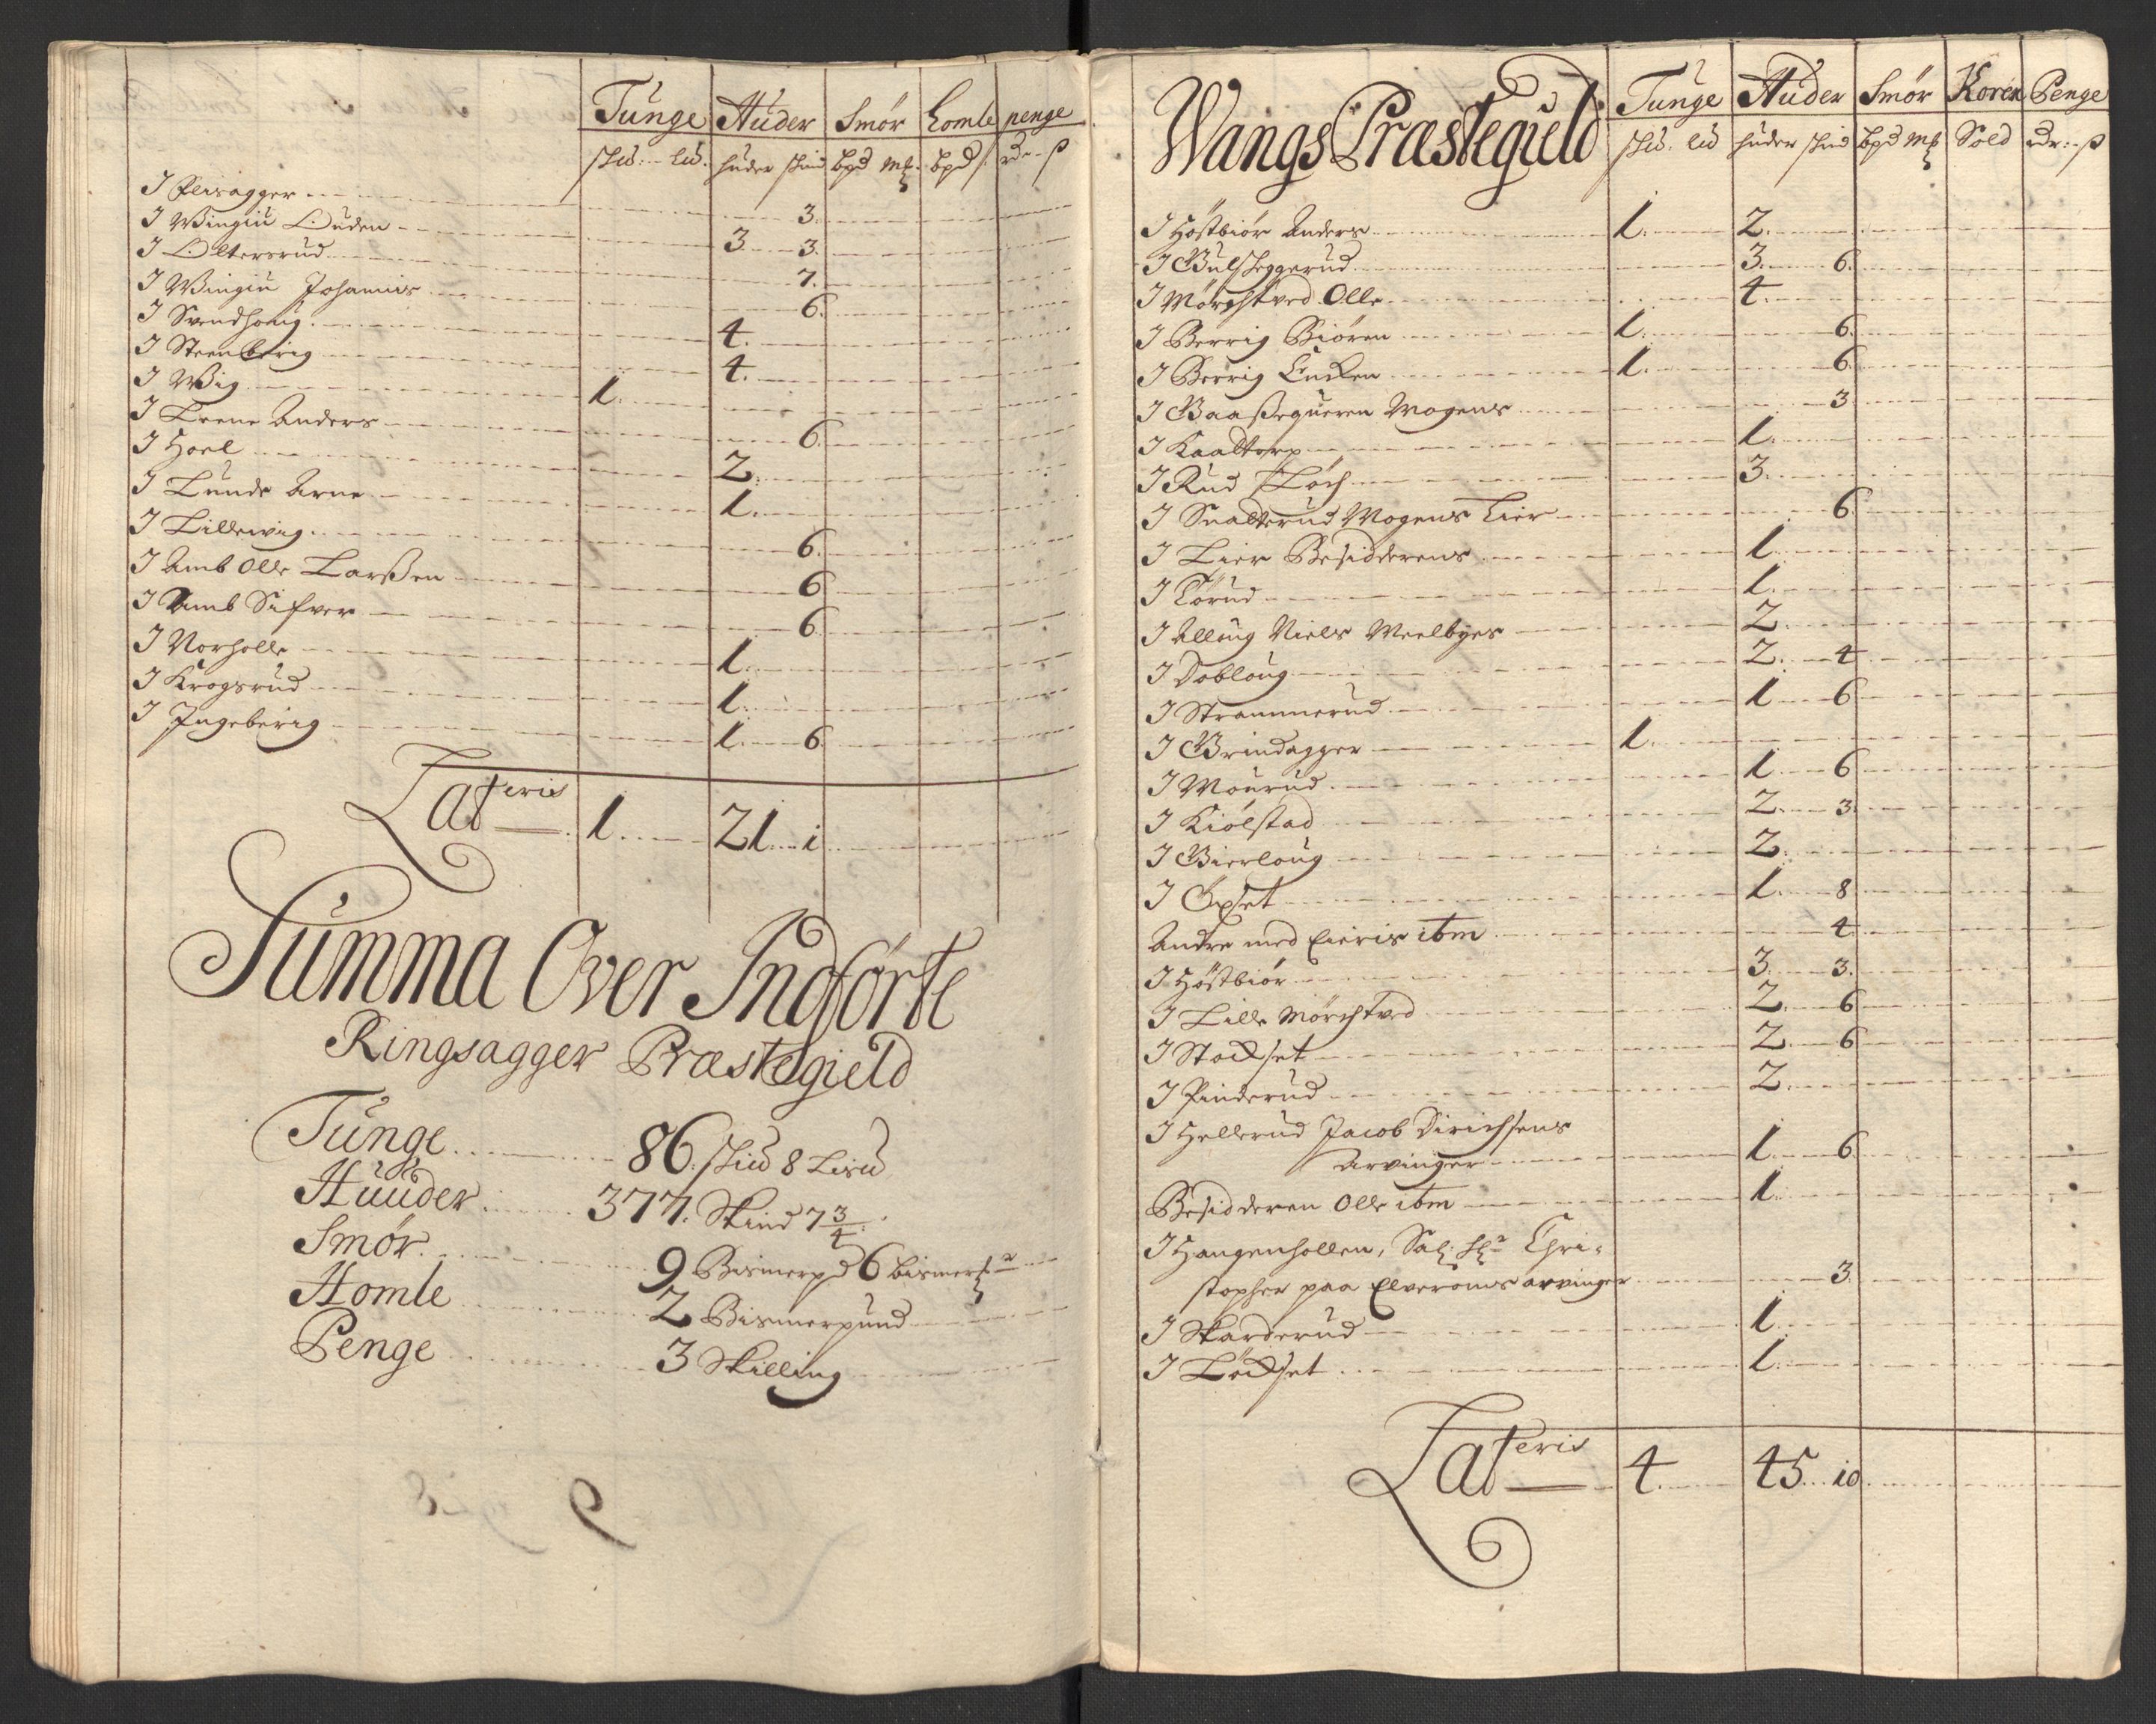 Tunge Huder Smör Homle penge
skd. Ld. huder skind bpd mk bpd rdr ß
J Fleisagger 3.
J Wingiu Ouden 3 3.
J Oltersrud 7.
J Wingiu Johannis 6.
J Svendhoug 4.
J Steenberig 4.
J Wig 1.
J Trene Anders 6.
J Hoel 2.
J Lunde Arne 1.
J Lillewig 6.
J Amb Olle Larßen 6
J Amb Sifver 6
J Norholle 1.
J Krogsrud 1.
J Ingeberig 1. 6.
Lateris 1. 21. i
Summa Over Indförte
Ringsagger Præstegield
Tunge 86. skid 8 Lisu
Huuder 377. Skind 7 3/4
Smör 9 Bismerpd 6 bismerk
Homle 2 Bismerpund
Penge 3 Skilling
Wangs Præstegield
Tunge Huder Smör Koren Penge
skd. Ld huder skind bpd mk Sold rdr ß
J Höstbiör Anders 1. 2.
J Gulskeggerud 3. 6.
J Mörchtved Olle 4.
J Berrig Biören 1. 6.
J Berrig Encken 1. 6.
J Baaßegueren Mogens 3
J Kaaltorp 1.
J Rud Löch 3.
J Snalterud Mogens Lier 6
J Lier Besidderens 1.
J Törud 1.
J Alloug Niels Meelbyes 2.
J Dobloug 2. 4
J Strammerud 1 6
J Grindagger 1.
J Mourud 1 6
J Kiölstad 2. 3.
J Gierloug 2.
J Opset 1. 8
Andre med Eieris ibm 4
J Höstbiör 3. 3.
J Lille Mörchtved 2. 6
J Stockset 2. 6
J Finderud 2.
J Hellerud Jacob Dirichsens
Arvinger 1. 6
Besidderen Olle ibm 1.
J Haugenhollen, Sal: Hr Chri-
stopher paa Elveroms arvinger 3.
J Skarderud 1.
J Löckset 1.
Lateris 4. 45. io